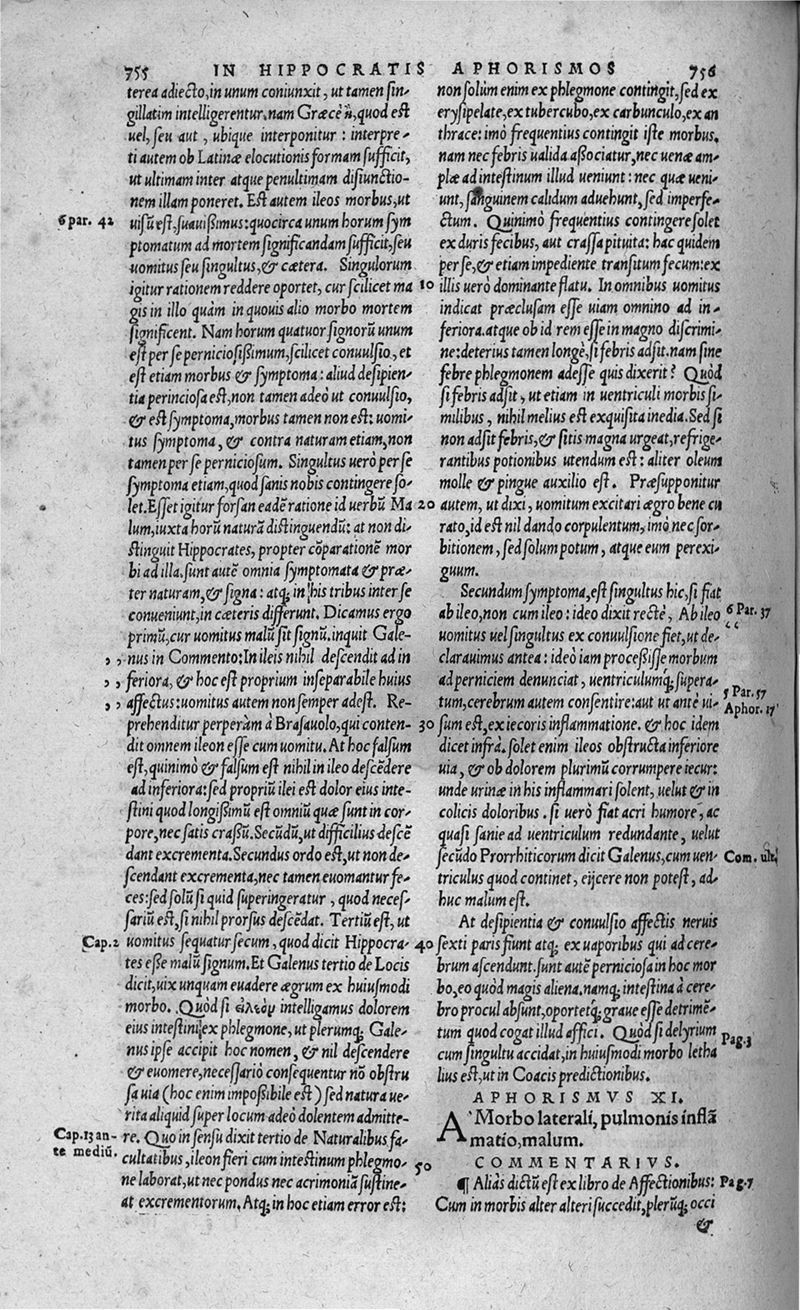 755 IN HIPPOCRATIS APHORISMOS 756
terea adiecto, in unum coniunxit, ut tamen sin-
gillatim intelligerentur. nam Græcè ἢ, quod est
uel, seu aut, ubique interponitur: interpre-
ti autem ob Latinæ elocutionis formam sufficit,
ut ultimam inter atque penultimam disiunctio-
nem illam poneret. Est autem ileos morbus, ut
6 par. 42
uisũ est, sæuißimus: quocirca unum horum sym
ptomatum ad mortem significandam sufficit, seu
uomitus seu singultus, & cætera. Singulorum
igitur rationem reddere oportet, cur scilicet ma
gis in illo quàm in quouis alio morbo mortem
significent. Nam horum quatuor signorũ unum
est per se perniciosißimum, scilicet conuulsio, et
est etiam morbus & symptoma: aliud desipien-
tia perinciosa est, non tamen adeò ut conuulsio,
& est symptoma, morbus tamen non est: uomi-
tus symptoma, & contra naturam etiam, non
tamen per se perniciosum. Singultus uerò per se
symptoma etiam, quod sanis nobis contingere so-
let. Esset igitur forsan eadẽ ratione id uerbũ Ma
lum, iuxta horũ naturã distinguendũ: at non di-
stinguit Hippocrates, propter cõparationẽ mor
bi ad illa. sunt autẽ omnia symptomata & præ-
ter naturam, & signa: atq; in his tribus inter se
conueniunt, in cæteris differunt. Dicamus ergo
primũ, cur uomitus malũ sit signũ. inquit Gale-
,, nus in Commento: In ileis nihil descendit ad in
,, feriora, & hoc est proprium inseparabile huius
,, affectus: uomitus autem non semper adest. Re-
prehenditur perperàm à Brasauolo, qui conten-
dit omnem ileon esse cum uomitu. At hoc falsum
est, quinimò & falsum est nihil in ileo descẽdere
ad inferiora: sed propriũ ilei est dolor eius inte-
stini quod longißimũ est omniũ quæ sunt in cor-
pore, nec satis crassũ. Secũdũ, ut difficilius descẽ
dant excrementa. Secundus ordo est, ut non de-
scendant excrementa, nec tamen euomantur fe-
ces: sed solũ si quid superingeratur, quod neces-
sariũ est, si nihil prorsus descẽdat. Tertiũ est, ut
Cap. 2
uomitus sequatur fecum, quod dicit Hippocra-
tes esse malũ signum. Et Galenus tertio de Locis
dicit, uix unquam euadere ægrum ex huiusmodi
morbo. Quòd si εἰλεὸν intelligamus dolorem
eius intestini ex phlegmone, ut plerumq; Gale-
nus ipse accipit hoc nomen, & nil descendere
& euomere, necessariò consequentur nõ obstru
sa uia (hoc enim impoßibile est) sed natura ue-
rita aliquid super locum adeò dolentem admitte-
Cap. 13 an-
te mediũ.
re. Quo in sensu dixit tertio de Naturalibus fa-
cultatibus, ileon fieri cum intestinum phlegmo-
ne laborat, ut nec pondus nec acrimoniã sustine-
at excrementorum. Atq; in hoc etiam error est:
non solùm enim ex phlegmone contingit, sed ex
erysipelate, ex tubercubo, ex carbunculo, ex an
thrace: imò frequentius contingit iste morbus.
nam nec febris ualida aßociatur, nec uenæ am-
plæ ad intestinum illud ueniunt: nec quæ ueni-
unt, sanguinem calidum aduehunt, sed imperfe-
ctum. Quinimò frequentius contingere solet
ex duris fecibus, aut crassa pituita: hac quidem
per se, & etiam impediente transitum fecum: ex
10 illis uerò dominante flatu. In omnibus uomitus
indicat præclusam esse uiam omnino ad in-
feriora. atque ob id rem esse in magno discrimi-
ne: deterius tamen longè, si febris adsit. nam sine
febre phlegmonem adesse quis dixerit? Quòd
si febris adsit, ut etiam in uentriculi morbis si-
milibus, nihil melius est exquisita inedia. Sed si
non adsit febris, & sitis magna urgeat, refrige-
rantibus potionibus utendum est: aliter oleum
molle & pingue auxilio est. Præsupponitur
20 autem, ut dixi, uomitum excitari ægro bene cu
rato, id est nil dando corpulentum, imò nec sor-
bitionem, sed solum potum, atque eum perexi-
guum.
Secundum symptoma, est singultus hic, si fiat
ab ileo, non cum ileo: ideo dixit rectè, Ab ileo
6 Par. 37
uomitus uel singultus ex conuulsione fiet, ut de-
clarauimus antea: ideò iam proceßisse morbum
ad perniciem denunciat, uentriculumq; supera-
5 Par. 57
tum, cerebrum autem consentire: aut ut antè ui-
Aphor. 17
30 sum est, ex iecoris inflammatione. & hoc idem
dicet infrà. solet enim ileos obstructa inferiore
uia, & ob dolorem plurimũ corrumpere iecur:
unde urinæ in his inflammari solent, uelut & in
colicis doloribus. si uerò fiat acri humore, ac
quasi sanie ad uentriculum redundante, uelut
secũdo Prorrhiticorum dicit Galenus, cum uen-
Com. ult.
triculus quod continet, eijcere non potest, ad-
huc malum est.
At desipientia & conuulsio affectis neruis
40 sexti paris fiunt atq; ex uaporibus qui ad cere-
brum ascendunt. sunt autẽ perniciosa in hoc mor
bo, eo quòd magis aliena. namq; intestina à cere-
bro procul absunt, oportetq; graue esse detrimẽ-
tum quod cogat illud affici. Quòd si delyrium
Pag. 3
cum singultu accidat, in huiusmodi morbo letha
lius est, ut in Coacis predictionibus.
APHORISMVS XI.
A Morbo laterali, pulmonis inflã
matio, malum.
COMMENTARIVS.
50 ¶ Aliàs dictũ est ex libro de Affectionibus:
Pag. 7
Cum in morbis alter alteri succedit, plerũq; occi
&